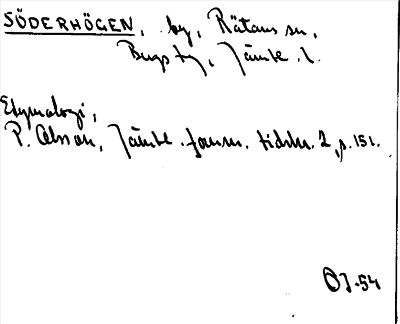 SÖDERHÖGEN, by, Rätans sn,
Bergs tg, Jämtl. l.
Etymologi,
P. Olsson, Jämtl. fornm. tidskr. 2, s. 151.
OJ-54